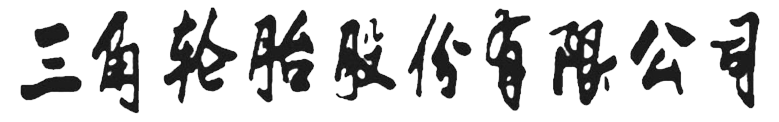 三角轮胎股份有限公司